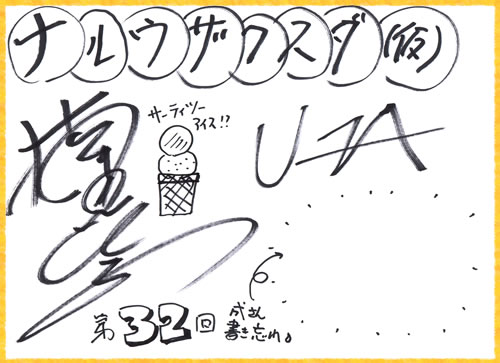 ナルウザクスダ(仮)
サーティツー
アイス!?
UZA
第32回
成さん
書き忘れ。